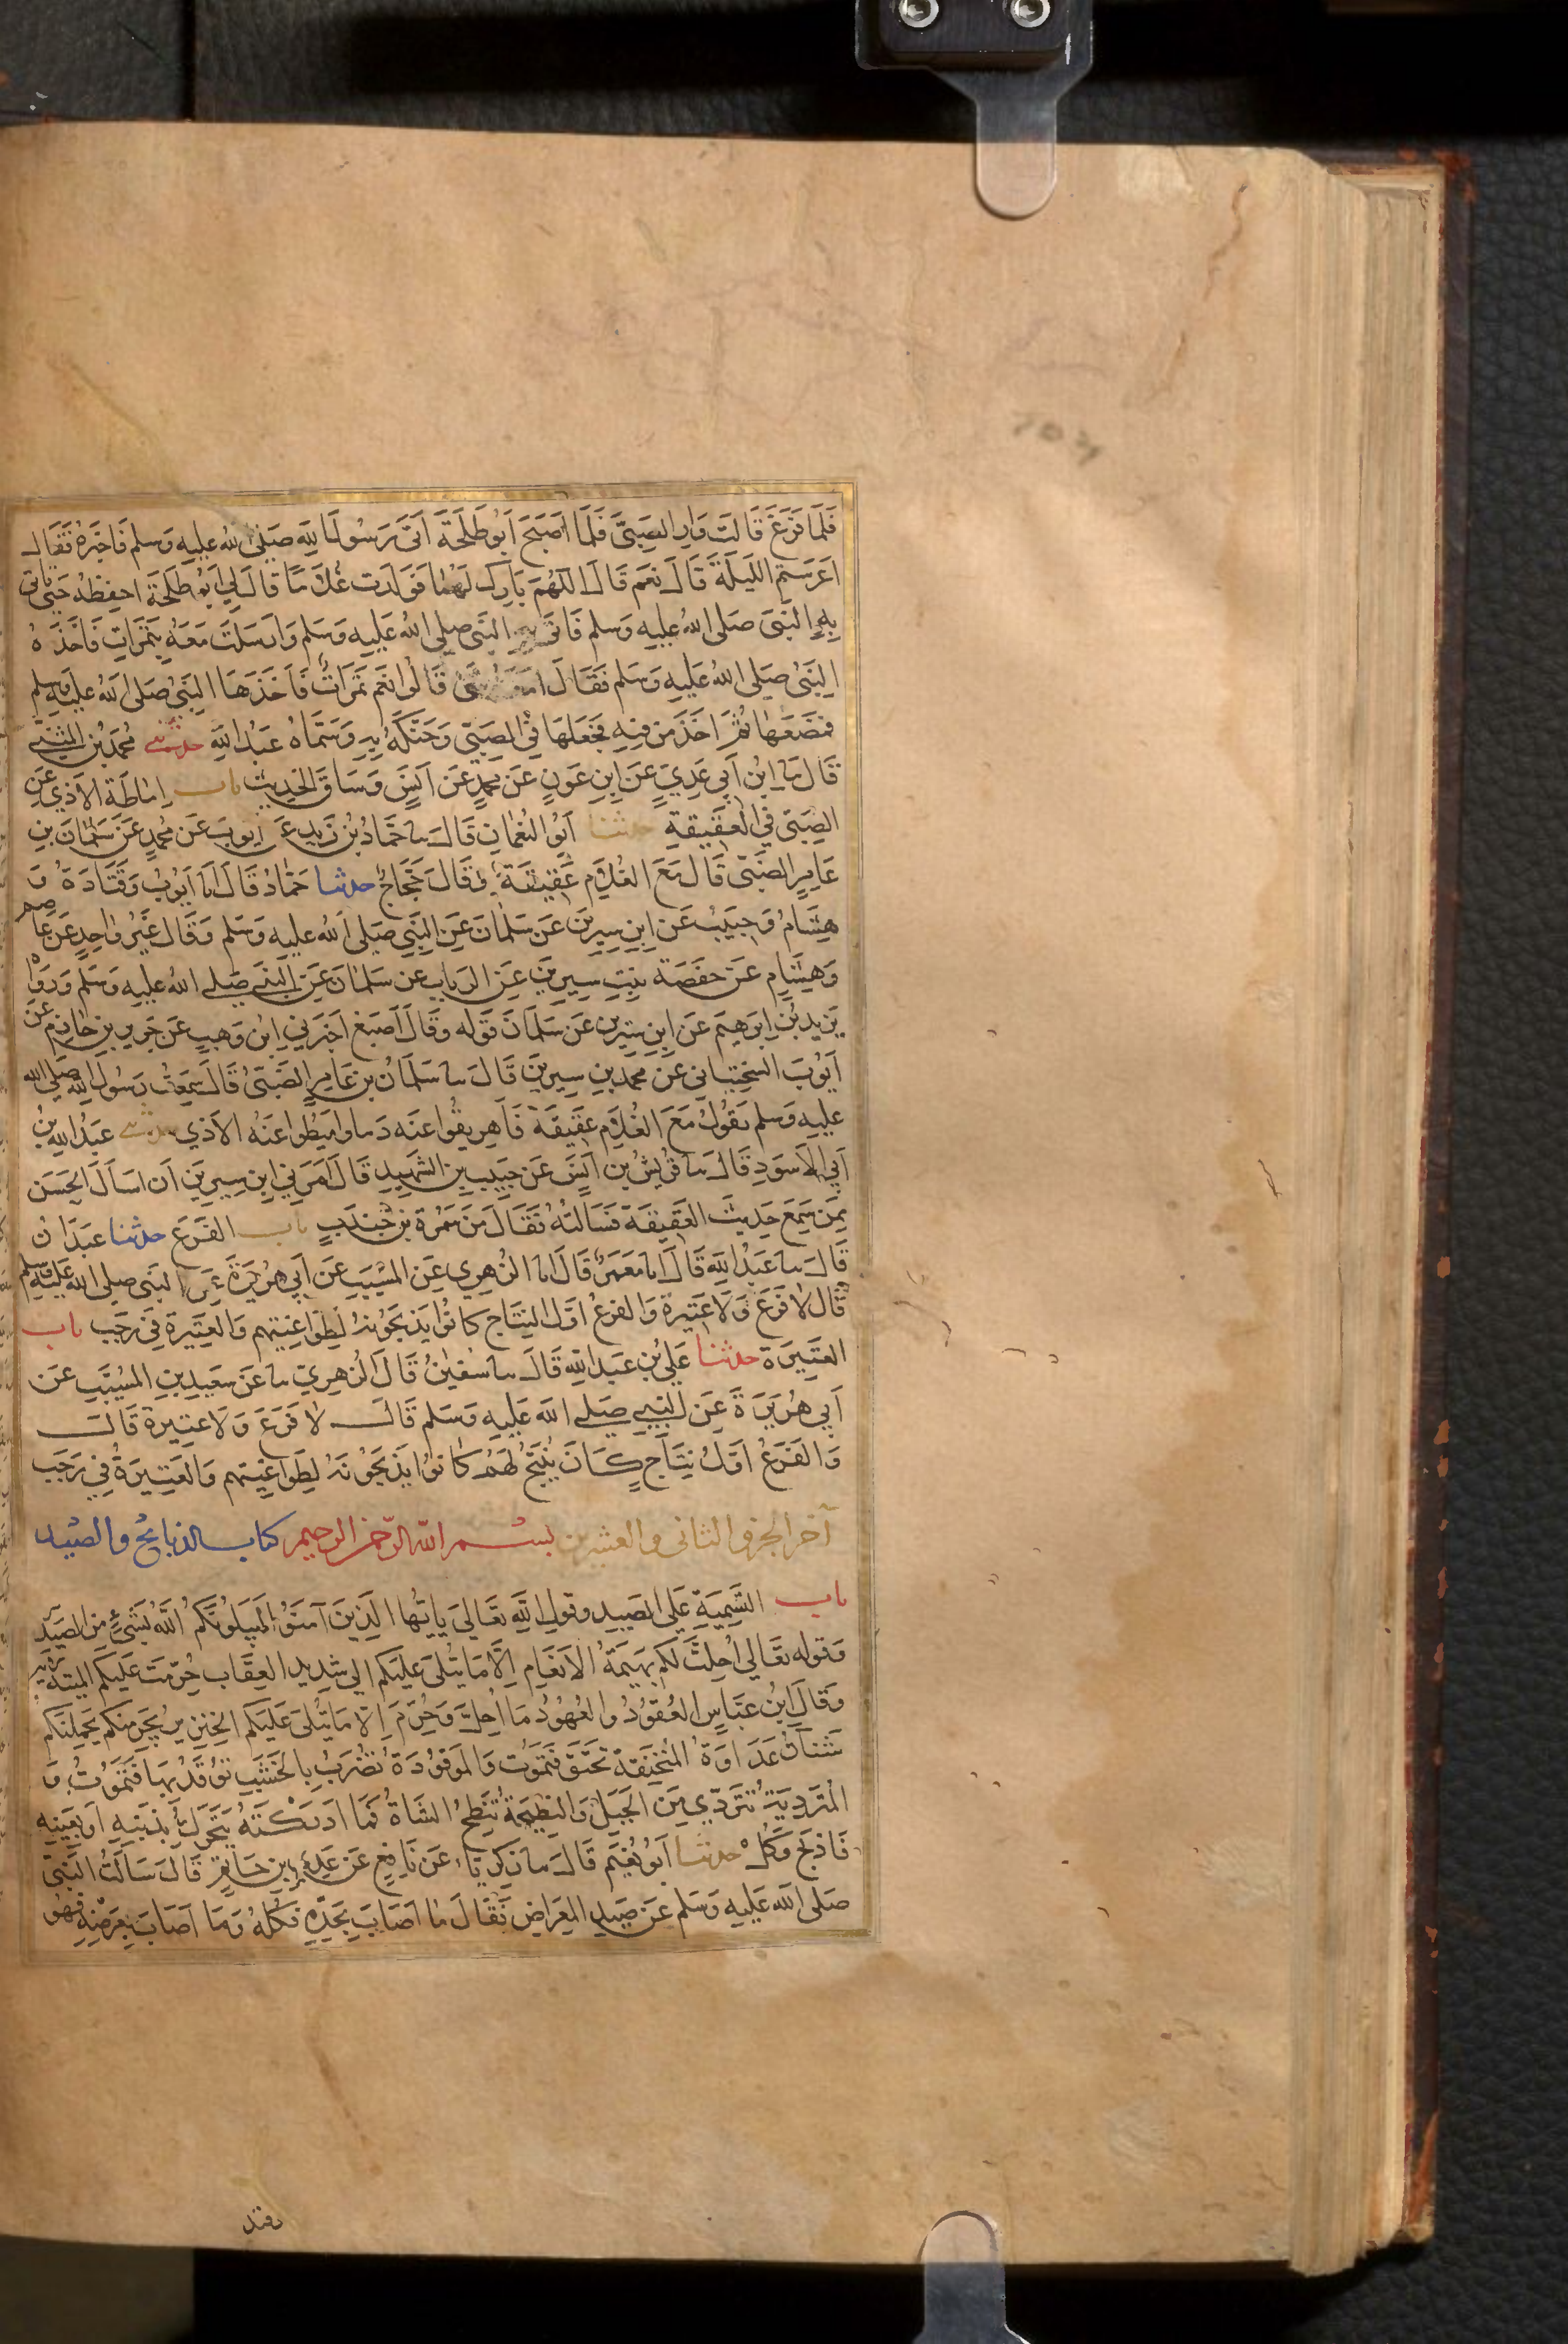 فَلَمَّا فَرَغَ قَالَتْ وَارِ الصَّبِيَّ فَلَمَّا اَصْبَحَ اَبُو طَلْحَةَ اَتَى رَسُولَ اللهِ صَلَّى اللهُ عَلَيْهِ وَسَلَّم فَاخْبَرَهُ فَقَالَ
اَعْرَسْتُمُ اللَّيْلَةَ قَالَ نَعَم قَالَ اللَّهُمَّ بَارِك لَهُمَا فَوَلَدَت غُلَامًا قَالَ لِي اَبُو طَلْحَةَ احفظْهُ حَتَّى تَاتِي
بِهِ النَّبِيَّ صَلَّى اللهُ عَلَيْهِ وَسَلَّم فَاَتَى بِهِ النَّبِيَّ صَلَّى اللهُ عَلَيْهِ وَسَلَّم وَاَرْسَلَتْ مَعَهُ بِتَمَرَاتٍ فَاَخَذَهُ
النَّبِيُّ صَلَّى اللهُ عَلَيْهِ وَسَلَّم فَقَالَ اَمَعَهُ شَىْء قَالُوا نَعَم تَمَرَاتٌ فَاَخَذَهَا النَّبِيُّ صَلَّى اللهُ عَلَيْهِ وَسَلَّم
فَمَضَغَهَا ثُمَّ اَخَذَ مِن فِيهِ فَجَعَلَهَا فِي الصَّبِيِّ وَحَنَّكَهُ بِهِ وَسَمَّاهُ عَبْدَ اللهِ حدثني مُحَمَّدُ بْنُ المُثَنَّى
قَالَ نا ابْنُ اَبِي عَدِيٍّ عَنِ ابْنِ عَوْنٍ عَن مُحَمَّدٍ عَن اَنَسٍ وَسَاقَ الحَدِيثَ باب اِمَاطَةِ الاَذَى عَنِ
الصَّبِيِّ فِي العَقِيقَةِ حدثنا اَبُو النُّعْمَانِ قَالَ نا حَمَّادُ بْنُ زَيْدٍ عَن اَيُّوبَ عَن مُحَمَّدٍ عَن سَلْمَانَ بْنِ
عَامِرٍ الضَّبِّيِّ قَالَ مَعَ الغُلَامِ عَقِيقَةٌ وَقَالَ حَجَّاجٌ حدثنا حَمَّادٌ قَالَ انا اَيُّوبُ وَقَتَادَةُ وَ
هِشَامٌ وَحَبِيبٌ عَنِ ابْنِ سِيرِينَ عَن سَلْمَانَ عَنِ النَّبِيِّ صَلَّى اللهُ عَلَيْهِ وَسَلَّم وَقَالَ غَيْرُ وَاحِدٍ عَن عَاصم
وَهِشَامٍ عَن حَفْصَةَ بِنْتِ سِيرِينَ عَنِ الرَّبَابِ عَن سَلْمَانَ عَنِ النَّبِيِّ صَلَّى اللهُ عَلَيْهِ وَسَلَّم وَرَوَاهُ
يَزِيدُ بْنُ اِبْرَهِيمَ عَنِ ابْنِ سِيرِينَ عَن سَلْمَانَ قَوْلَه وَقَالَ اَصْبَغُ اَخْبَرَنِي ابْنُ وَهْبٍ عَن جَرِيرِ بْنِ حَازِمٍ عَن
اَيُّوبَ السَّخْتِيَانِي عَن مُحَمَّدِ بْنِ سِيرِينَ قَالَ نا سَلْمَانُ بْنُ عَامِرٍ الضَّبِّيُّ قَالَ سَمِعْتُ رَسُولَ اللهِ صَلَّى الله
عَلَيْهِ وَسَلَّم يَقُولُ مَعَ الغُلَامِ عَقِيقَةٌ فَاَهْرِيقُوا عَنْهُ دَمًا وَامِيطُوا عَنْهُ الاَذَى حدثني عَبْدُ اللهِ بْنُ
اَبِي الاَسْوَدِ قَالَ نا قُرَيْشُ بْنُ اَنَسٍ عَن حَبِيبِ بْنِ الشَّهِيدِ قَالَ اَمَرَنِي ابْنُ سِيرِينَ اَن اَسْاَلَ الحَسَنَ
مِمَّن سَمِعَ حَدِيثَ العَقِيقَةِ فَسَاَلْتُهُ فَقَالَ مِن سَمُرَةَ بْنِ جُنْدَبٍ باب الفَرَعِ حدثنا عَبْدَانُ
قَالَ نا عَبْدُ اللهِ قَالَ انا مَعْمَرٌ قَالَ انا الزُّهْرِي عَنِ المُسَيَّبِ عَن اَبِي هُرَيْرَةَ عَنِ النَّبِيِّ صَلَّى اللهُ عَلَيْهِ وَسَلَّم
قَالَ لَا فَرَعَ وَلَا عَتِيرَةَ وَالفَرَعُ اَوَّلُ النِّتَاجِ كَانُوا يَذْبَحُونَهُ لِطَوَاغِيتِهِم وَالعَتِيرَةُ فِي رَجَبٍ باب
العَتِيرَةِ حدثنا عَلِيُّ بْنُ عَبْدِ اللهِ قَالَ نا سُفْيَانُ قَالَ الزُّهْرِيُّ نا عَن سَعِيدِ بْنِ المُسَيَّبِ عَن
اَبِي هُرَيْرَةَ عَنِ النَّبِيِّ صَلَّى اللهُ عَلَيْهِ وَسَلَّم قَالَ لَا فَرَعَ وَلَا عَتِيرَةَ قَالَ
وَالفَرَعُ اَوَّلُ نِتَاجٍ كَانَ يُنْتَجُ لَهُم كَانُوا يَذْبَحُونَهُ لِطَوَاغِيتِهِم وَالعَتِيرَةُ فِي رَجَبٍ
آخر الجزو الثاني والعشرين بسم الله الرحمن الرحيم كتاب الذبايح والصيد
باب التَّسْمِيَةِ عَلَى الصَّيْدِ وَقَوْلِ اللهِ تَعَالَى يَايُّهَا الَّذِينَ آمَنُوا لَيَبْلُوَنَّكُمُ اللهُ بِشَيْءٍ مِنَ الصَّيْدِ
وَقَوْلِهِ تَعَالَى اُحِلَّتْ لَكُم بَهِيمَةُ الاَنْعَامِ اِلَّا مَا يُتْلَى عَلَيْكُم اِلَى شَدِيدِ العِقَابِ حُرِّمَتْ عَلَيْكُمُ المَيْتَةُ
وَقَالَ ابْنُ عَبَّاسٍ العُقُودُ والعُهُودُ مَا اُحِلَّ وَحُرِّمَ اِلَّا مَا يُتْلَى عَلَيْكُم الخِنْزِيرُ يَجْرِمَنَّكُم يَحْمِلَنَّكُم
شَنَآنُ عَدَاوَةُ المُنْخَنِقَةُ تُخْنَقُ فَتَمُوتُ وَالمَوْقُوذَةُ تُضْرَبُ بِالخَشَبِ تُوقَذُ بِهَا فَتَمُوتُ وَ
المُتَرَدِّيَةُ تَتَرَدَّى مِنَ الجَبَلِ وَالنَّطِيحَةُ تُنْطَحُ الشَّاةُ فَمَا اَدْرَكْتَهُ يَتَحَرَّكُ بِذَنَبِهِ اَوْ بِعَيْنِهِ
فَاذْبَحْ وَكُلْ حدثنا اَبُو نُعَيْمٍ قَالَ نا زَكَرِيَّاءُ عَن نَافِعٍ عَن عَدِيِّ بْنِ حَاتِمٍ قَالَ سَاَلْتُ النَّبِيَّ
صَلَّى اللهُ عَلَيْهِ وَسَلَّم عَن صَيْدِ المِعْرَاضِ فَقَالَ مَا اَصَابَ بِحَدِّهِ فَكُلْهُ وَمَا اَصَابَ بِعَرْضِهِ فَهُوَ
وقيذ